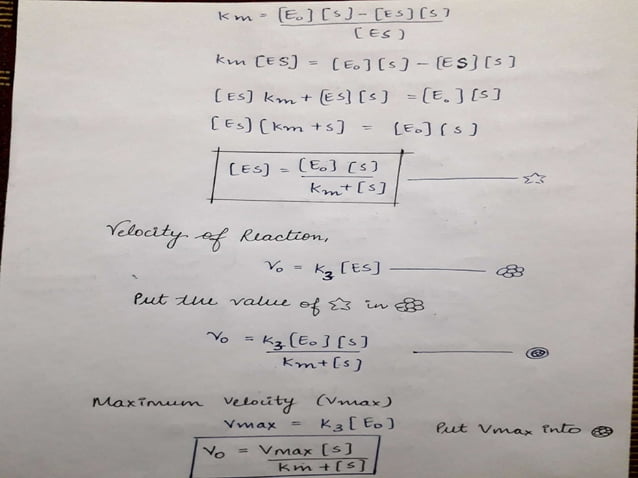 Km = [E₀] [S] - [ES] [S]
[ES)
Km [ES] = [E₀] [S] - [ES] [S]
[ES] Km + [ES] [S] = [E₀] [S]
[ES) [Km + S] = [E₀] [S)
[ES] = [E₀] [S]
Km + [S]
Velocity of Reaction,
V₀ = K₃ [ES]
Put the value of ☆ in
V₀ = K₃ [E₀] [S]
Km + [S]
Maximum Velocity (Vmax)
Vmax = K₃ [E₀] Put Vmax into
V₀ = Vmax [S]
Km + [S]